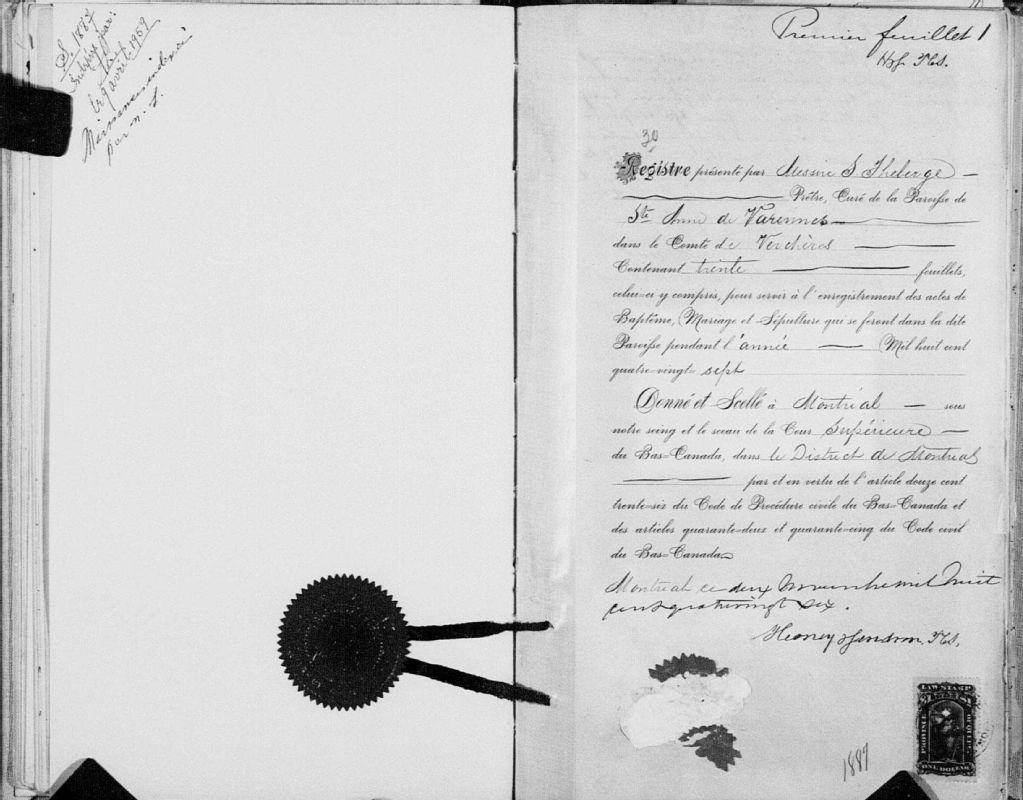 S. 1887
par:
le 9 avril 1959
par n. s.
Premier feuillet 1
30
Registre présenté par Messire J Theberge
Prêtre, Curé de la Paroisse de
Ste Anne de Varennes
dans le Comté de Verchères
Contenant trente feuillets,
celui=ci y compris, pour servir à l'enregistrement des actes de
Baptême, Mariage et Sépulture qui se feront dans la dite
Paroisse pendant l'année Mil huit cent
quatre-vingt= sept
Donné et Scellé à Montréal sous
notre seing et le sceau de la Cour Supérieure
du Bas=Canada, dans le District de Montréal
par et en vertu de l'article douze cent
trente=six du Code de Procédure civile du Bas=Canada et
des articles quarante=deux et quarante=cinq du Code civil
du Bas=Canada
Montreal ce deux Novembre mil huit
cent quatrevingt six.
LAW STAMP
PROVINCE OF QUEBEC
ONE DOLLAR
1887